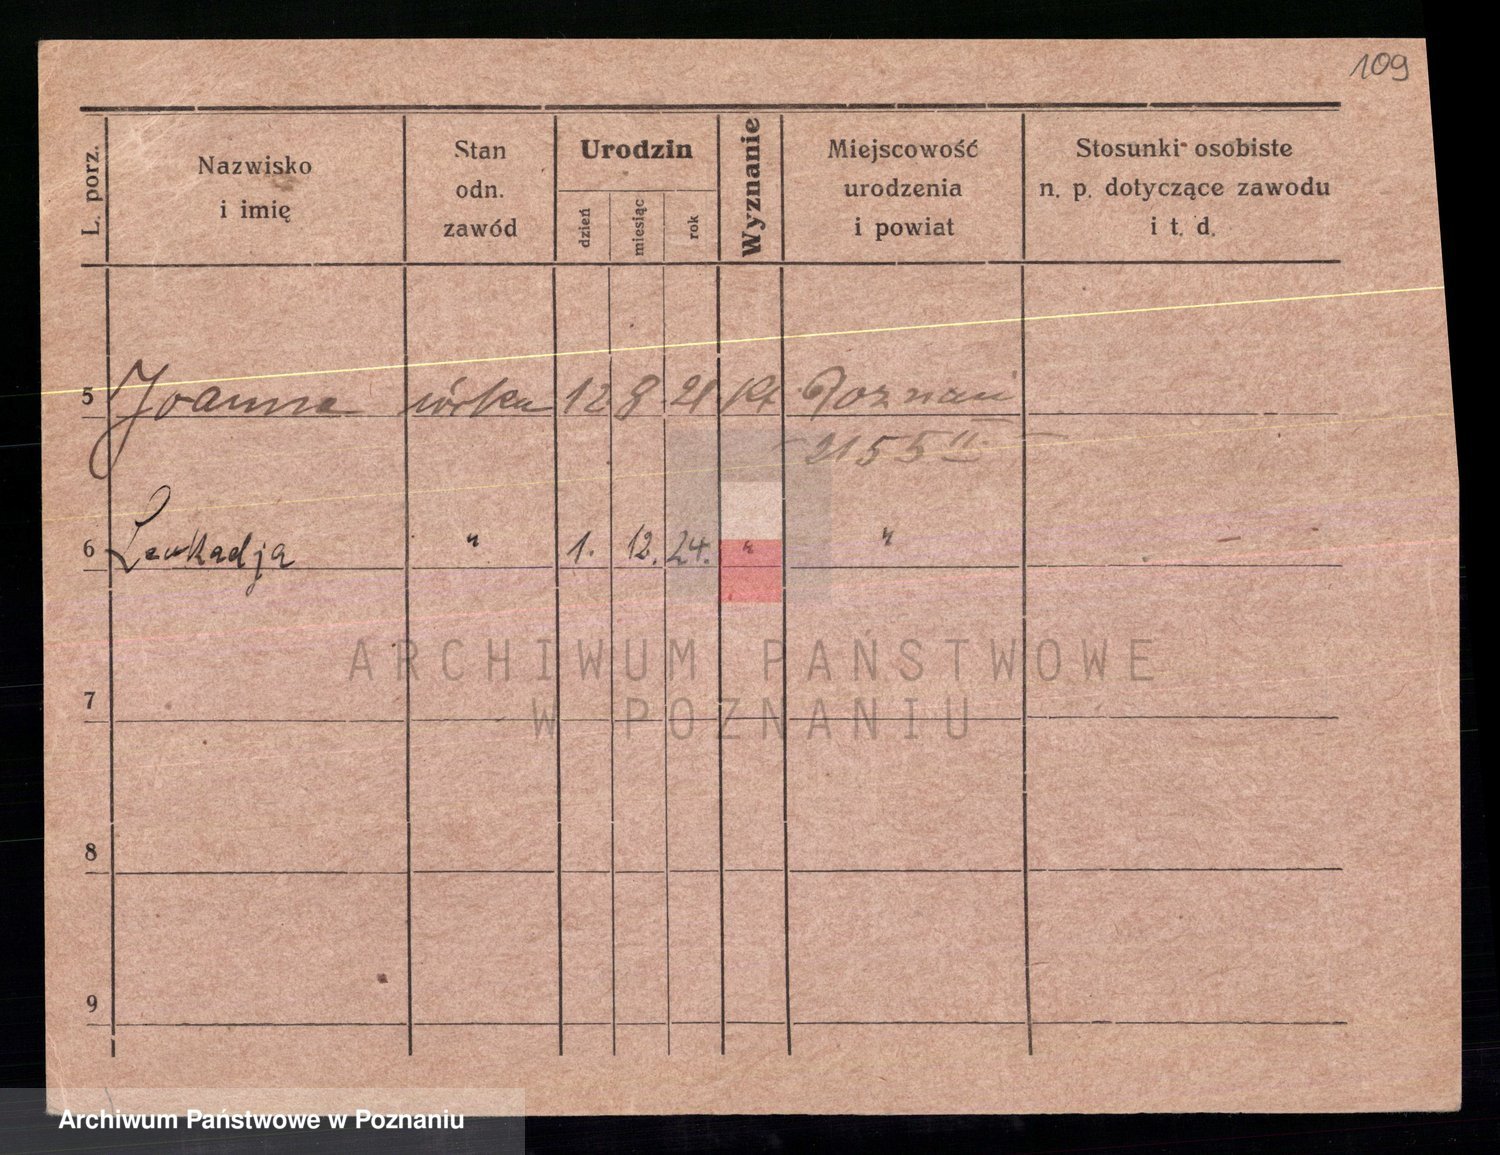 109
L. porz.
Nazwisko
i imię
Stan
odn.
zawód
Urodzin
dzień
miesiąc
rok
Wyznanie
Miejscowość
urodzenia
i powiat
Stosunki osobiste
n. p. dotyczące zawodu
i t. d.
5 Joanna córka 12 8 21 Kt Poznań
2155 II
6 Leukadja " 1. 12. 24. " " –
7
8
9
ARCHIWUM PAŃSTWOWE
W POZNANIU
Archiwum Państwowe w Poznaniu